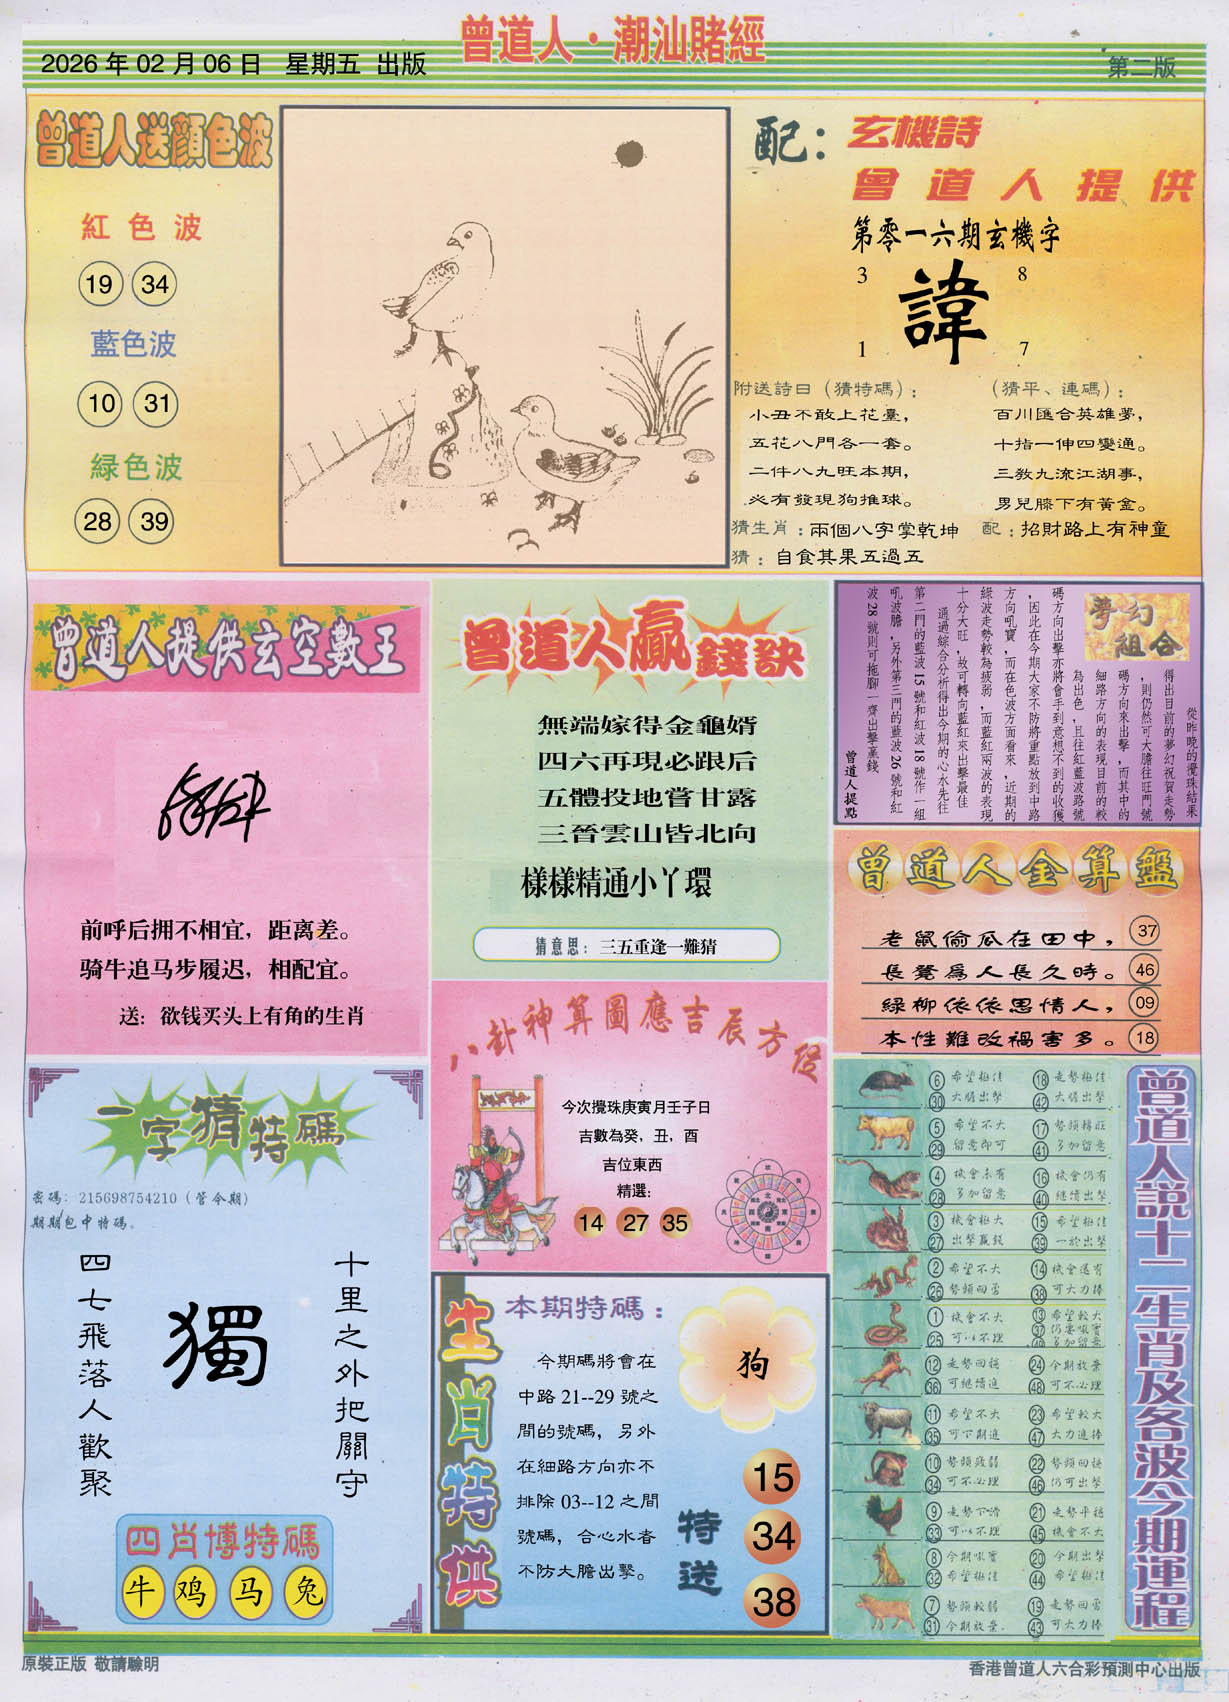 曾道人·潮汕賭經
2026 年 02 月 06 日 星期五 出版
第二版
曾道人送顏色波
紅色波
19 34
藍色波
10 31
緑色波
28 39
配：
玄機詩
曾道人提供
第零一六期玄機字
3 8
諱
1 7
附送詩曰（猜特碼）：
小丑不敢上花臺，
五花八門各一套。
二件八九旺本期，
必有發現狗推球。
（猜平、連碼）：
百川匯合英雄夢，
十指一伸四變通。
三教九流江湖事，
男兒膝下有黃金。
猜生肖：兩個八字掌乾坤
配：招財路上有神童
猜：自食其果五過五
曾道人提供玄空數王
前呼后拥不相宜，距离差。
骑牛追马步履迟，相配宜。
送：欲钱买头上有角的生肖
曾道人贏錢訣
無端嫁得金龜婿
四六再現必跟后
五體投地嘗甘露
三晉雲山皆北向
樣樣精通小丫環
猜意思：三五重逢一難猜
夢幻組合
從昨晚的攪珠結果
得出目前的夢幻祝賀走勢
，則仍然可大膽往旺門號
碼方向來出擊，而其中的
細路方向的表現目前的較
為出色，且往紅藍波路號
碼方向出擊亦將會手到意想不到的收獲
，因此在今期大家不防將重點放到中路
方向吼寶，而在色波方面看來，近期的
綠波走勢較為疲弱，而藍紅兩波的表現
十分大旺，故可轉向藍紅來出擊最佳
通過綜合分析得出今期的心水先往
第二門的藍波 15 號和紅波 18 號作一組
吼波膽，另外第三門的藍波 26 號和紅
波 28 號則可拖腳一齊出擊贏錢
曾道人提點
曾道人金算盤
老鼠偷瓜在田中， 37
長凳爲人長久時。 46
緑柳依依思情人， 09
本性難改禍害多。 18
八卦神算圖應吉辰方位
今次攪珠庚寅月壬子日
吉數為癸，丑，酉
吉位東西
精選：
14 27 35
一字猜特碼
密碼：215698754210（管令期）
期期包中特碼。
十里之外把關守
獨
四七飛落人歡聚
四肖博特碼
牛 鸡 马 兔
生肖特供
本期特碼：
今期碼將會在
中路 21--29 號之
間的號碼，另外
在細路方向亦不
排除 03--12 之間
號碼，合心水者
不防大膽出擊。
狗
特送
15
34
38
曾道人説十二生肖及各波今期運程
6 希望極佳 18 走勢極佳
30 大膽出擊 42 大膽出擊
5 希望不大 17 勢頭轉旺
29 留意即可 41 多加留意
4 機會未有 16 機會仍有
28 多加留意 40 繼續出擊
3 機會極大 15 希望極佳
27 出擊贏錢 39 一於出擊
2 希望不大 14 機會還有
26 勢頭回勇 38 可大力捧
1 機會不大 13 希望較大
25 可以不理 37 仍要吼實
49 多加留意
12 走勢回穩 24 今期放棄
36 可繼續追 48 可不必理
11 希望不大 23 希望較大
35 可下期追 47 大力追捧
10 勢頭疲弱 22 勢頭回穩
34 可不必理 46 仍可出擊
9 走勢下滑 21 走勢平穩
33 可以不理 45 機會不大
8 今期吼實 20 今期出擊
32 希望極佳 44 希望極佳
7 勢頭較弱 19 走勢回勇
31 今期放棄 43 可大力捧
原裝正版 敬請驗明
香港曾道人六合彩預測中心出版